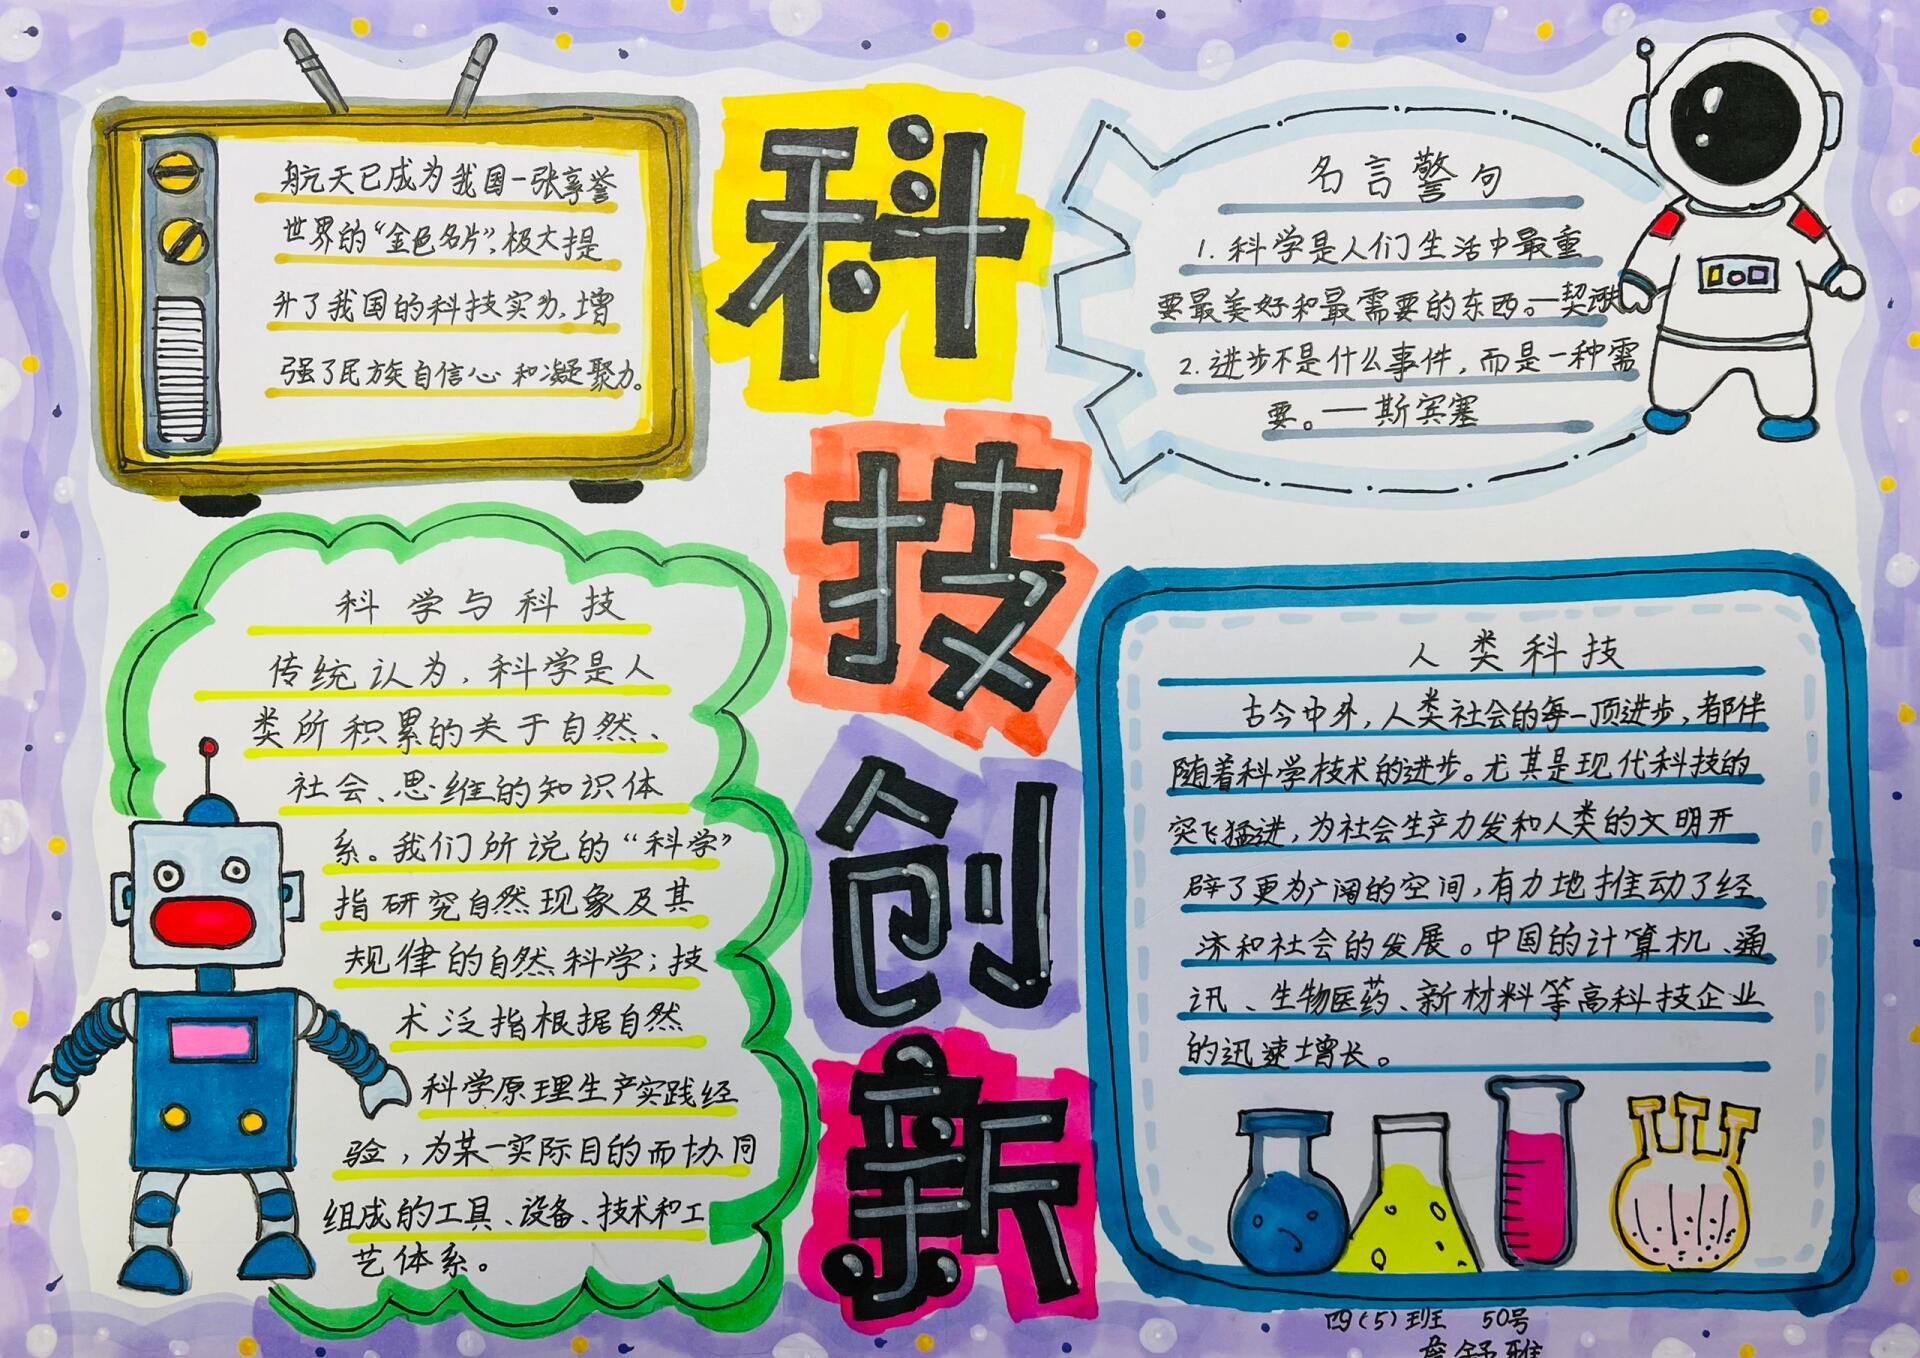 航天已成为我国一张享誉
世界的“金色名片”，极大提
升了我国的科技实力，增
强了民族自信心和凝聚力。
科
技
创
新
名言警句
1.科学是人们生活中最重
要最美好和最需要的东西。—契诃
2.进步不是什么事件，而是一种需
要。——斯宾塞
科学与科技
传统认为，科学是人
类所积累的关于自然、
社会、思维的知识体
系。我们所说的“科学”
指研究自然现象及其
规律的自然科学；技
术泛指根据自然
科学原理生产实践经
验，为某一实际目的而协同
组成的工具、设备、技术和工
艺体系。
人类科技
古今中外，人类社会的每一项进步，都伴
随着科学技术的进步。尤其是现代科技的
突飞猛进，为社会生产力发和人类的文明开
辟了更为广阔的空间，有力地推动了经
济和社会的发展。中国的计算机、通
讯、生物医药、新材料等高科技企业
的迅速增长。
四（5）班 50号
詹舒雅